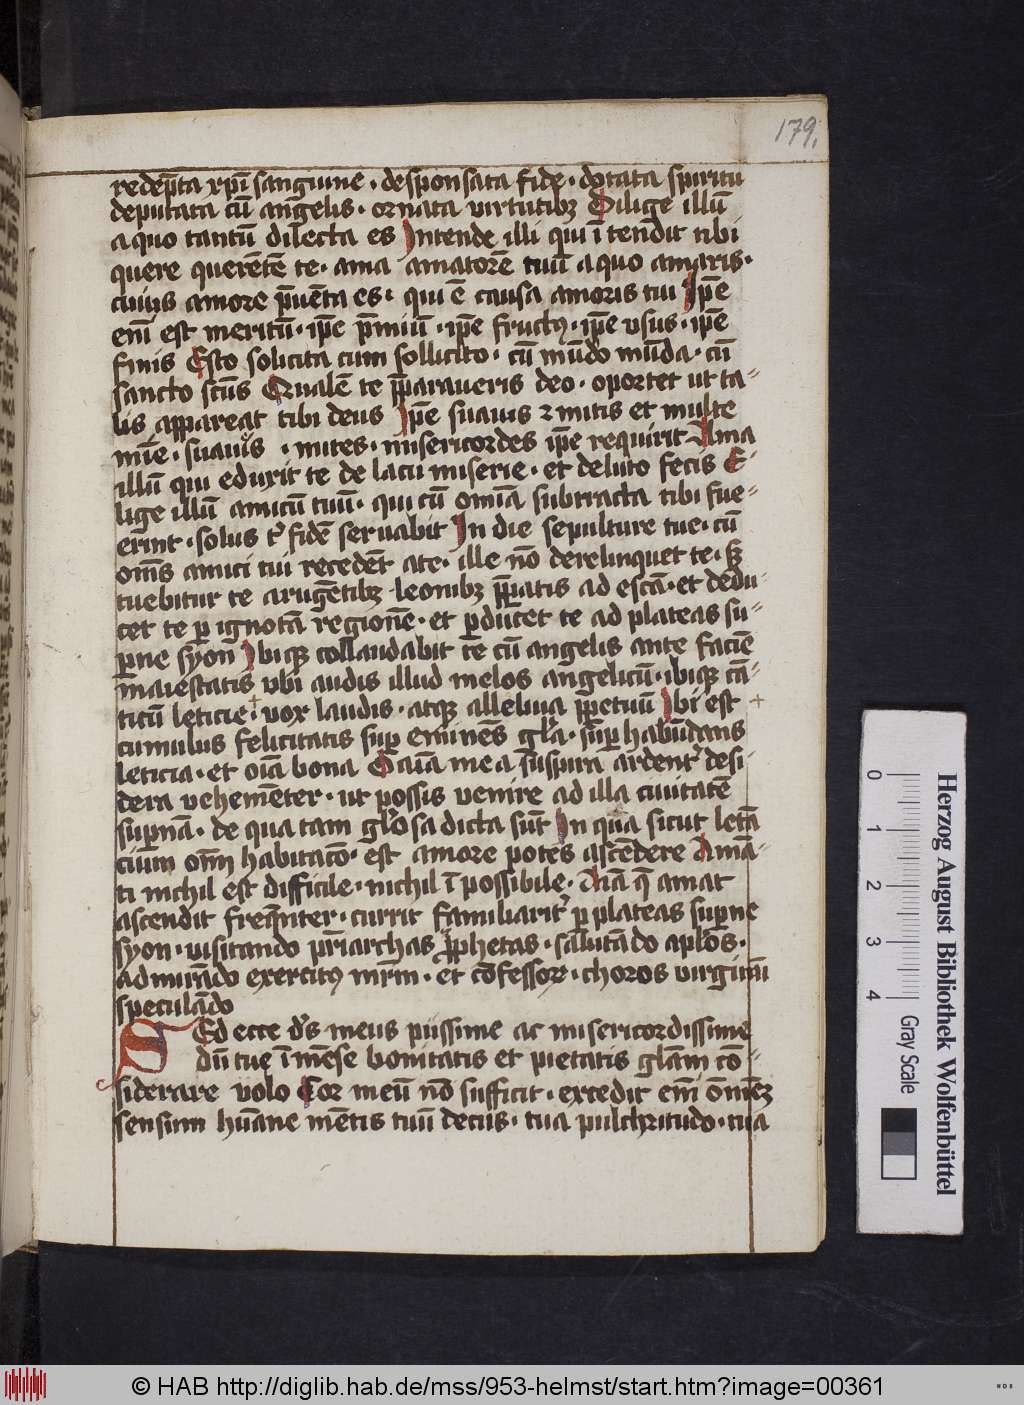 179.
redēpta xp̄i sangwine · desponsata fide · dotata spiritu
deputata cū angelis · ornata virtutibꝫ Dilige illū
a quo tantū dilecta es Intende illi qui ītendit tibi
quere querētē te · ama amatorē tuū a quo amaris ·
cuius amore p̄uēta es · qui ē causa amoris tui Ip̄e
em̄ est meritū · ip̄e p̄miū · ip̄e fructꝰ · ip̄e vsus · ip̄e
finis Esto solicita cum sollicito · cū mūdo mūda · cū
sancto scūs Qualē te p̄paraueris deo · oportet ut ta-
lis appareat tibi deus Ip̄e suauis ⁊ mitis et multe
mīe · suaues · mites · misericordes ip̄e requirit Ama
illū qui eduxit te de lacu miserie · et de luto fecis E-
lige illū amicū tuū · qui cū om̄ia subtracta tibi fue-
erīnt · solus t̄ fidē seruabit In die sepulture tue · cū
om̄s amici tui recedēt a te · ille nō derelinquet te · sꝫ
tuebitur te a rugētibꝫ leonibꝫ p̄paratis ad escā · et dedu-
cet te ꝑ ignotā regionē · et ꝑducet te ad plateas su-
ꝑne syon Ibiqꝫ collaudabit te cū angelis ante faciē
maiestatis vbi audis illud melos angelicū · ibiqꝫ cā-
ticū leticie · vox laudis · atqꝫ alleluya ꝑpetuū Ibi est
cumulus felicitatis suꝑ eminēs gl̄a · suꝑhabūdans
leticia · et oīa bona O aīa mea suspira ardent̄ desi
dera vehemēter · ut possis venire ad illā ciuitatē
suꝑnā · de qua tam gl̄osa dicta sūt In qua sicut letā
cium om̄ habitaco̅ · est amore potes ascēdere Amā-
ti nichil est difficile · nichil īpossibile · Aīa q̄ amat
ascendit freqn̄ter · currit familiarit̄ ꝑ plateas suꝑne
syon · visitando pr̄iarchas ꝓphetas · salutādo apl̄os ·
admirādo exercitꝰ mr̄m · et cōfessorꝝ · choros virginū
speculādo
Sed ecce d̄s meus piissime ac misericordissime
dū tue īmēse bonitatis et pietatis gl̄am cō-
siderare volo Cor meū nō sufficit · excedit em̄ ōmēꝫ
sensum hūane mētis tuū decus · tua pulchritudo · tua
Herzog August Bibliothek Wolfenbüttel
0 1 2 3 4 Gray Scale
© HAB http://diglib.hab.de/mss/953-helmst/start.htm?image=00361